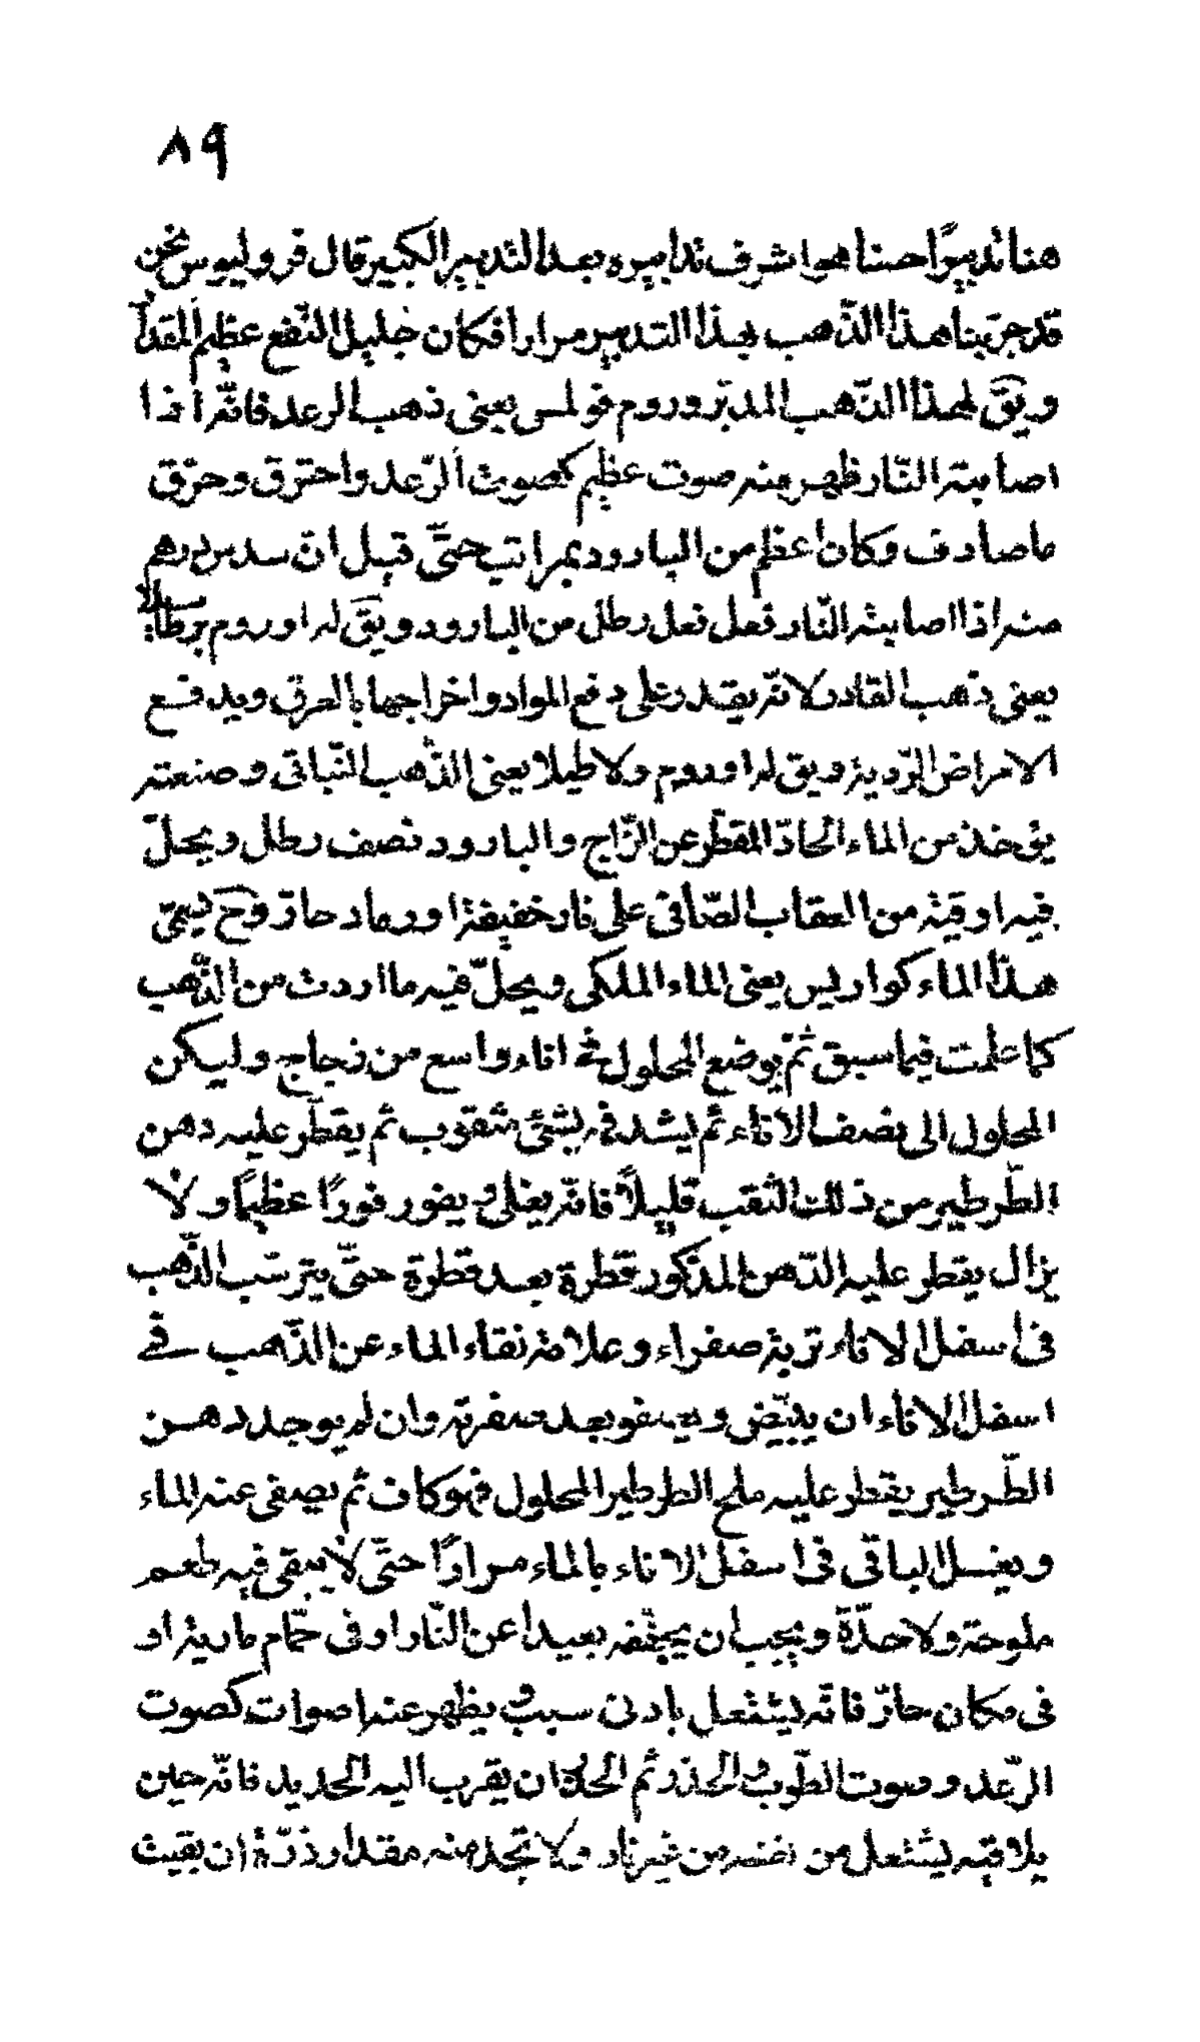 ٨٩
هنا تدبيرًا حسنا هوا شرف تدابيره بعد التدبير الكبير قال قروليوس نحن
قد جربنا هذا الذّهب بهذا التدبير مرارا فكان جليل النّفع عظيم المقدار
ويق لهذا الذّهب المدبّر وروم فولمس يعنى ذهب الرعد فانّه اذا
اصابته النّار ظهر منه صوت عظيم كصوت الرّعد واحترق وحرّق
ما صادف وكان اعظم من البارود بمراتب حتّى قيل انّ سدس درهم
منه اذا اصابته النّار فعل فعل رطل من البارود ويق له اوروم
يعنى ذهب القادر لانّه يقدر على دفع المواد واخراجها بالعرق ويدفع
الامراض الرّدية ويق له اوروم ولاطيلا يعنى الذّهب النّباتى وصنعته
يؤخذ من الماء الحادّ المقطّر عن الزّاج والبارود نصف رطل ويحلّ
فيه اوقية من العقاب الصّافى على نار خفيفة او رماد حارّ وح يسمّى
هذا الماء كواريس يعنى الماء الملكى ويحلّ فيه ما اردت من الذّهب
كما علمت فيما سبق ثمّ يوضع المحلول فى اناء واسع من زجاج وليكن
المحلول الى نصف الاناء ثم ليشد فمه بشئ مثقوب ثم يقطّر عليه دهن
الطّرطير من ذلك الثقب قليلاً فانّه يغلى ويفور فورًا عظيمًا ولا
يزال يقطر عليه الدّهن المذكور قطرة بعد قطرة حتّى يترسّب الذّهب
فى اسفل الاناء تربة صفراء وعلامة نقاء الماء عن الذّهب فى
اسفل الاناء ان يبيّض ويصفو بعد صفرته وان لم يوجد دهن
الطّرطير يقطر عليه ملح الطرطير المحلول فهو كاف ثم يصفى عنه الماء
ويغسل الباقى فى اسفل الاناء بالماء مرارًا حتّى لا يبقى فيه طعم
ملوحة ولا حدّة ويجب ان يجفّفه بعيدا عن النّار او فى حمّام مارية او
فى مكان حارّ فانّه يشتعل بادنى سبب ويظهر عنه اصوات كصوت
الرّعد وصوت الطّوب والحذر ثم الحذر ان يقرب اليه الحديد فانّه حين
يلاقيه يشتعل من نفسه من غير نار ولا تجد منه مقدار ذرّة ان بقيت